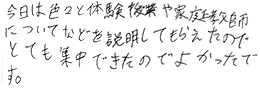 今日は色々と体験授業や家庭教師
についてなどを説明してもらえたので
とても集中できたのでよかったで
す。